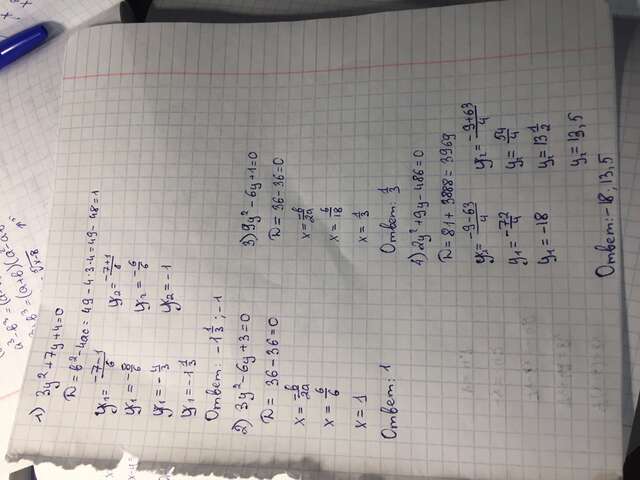 1) 3y²+7y+4=0
D=b²-4ac=49-4·3·4=49-48=1
y₁=(-7-1)/6 y₂=(-7+1)/6
y₁=-8/6 y₂=-6/6
y₁=-4/3 y₂=-1
y₁=-1 1/3
Ответ: -1 1/3; -1
2) 3y²-6y+3=0
D=36-36=0
x=-b/2a
x=6/6
x=1
Ответ: 1
3) 9y²-6y+1=0
D=36-36=0
x=-b/2a
x=6/18
x=1/3
Ответ: 1/3
4) 2y²+9y-486=0
D=81+3888=3969
y₁=(-9-63)/4 y₂=(-9+63)/4
y₁=-72/4 y₂=54/4
y₁=-18 y₂=13 1/2
y₂=13,5
Ответ: -18; 13,5